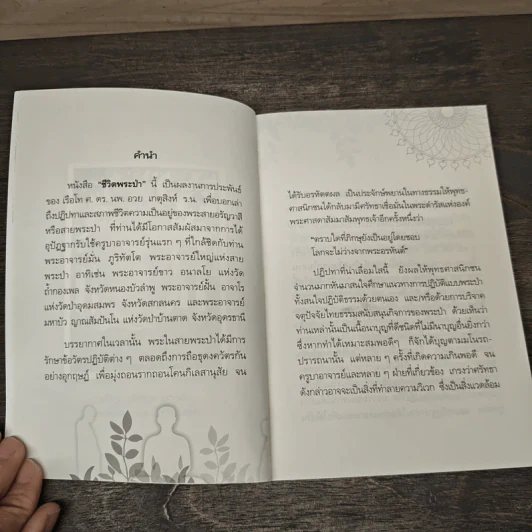 คำนำ
หนังสือ "ชีวิตพระป่า" นี้ เป็นผลงานการประพันธ์
ของ เรือโท ศ. ดร. นพ. อวย เกตุสิงห์ ร.น. เพื่อบอกเล่า
ถึงปฏิปทาและสภาพชีวิตความเป็นอยู่ของพระสายอรัญวาสี
หรือสายพระป่า ที่ท่านได้มีโอกาสสัมผัสมาจากการได้
อุปัฏฐากรับใช้ครูบาอาจารย์รุ่นแรก ๆ ที่ใกล้ชิดกับท่าน
พระอาจารย์มั่น ภูริทัตโต พระอาจารย์ใหญ่แห่งสาย
พระป่า อาทิเช่น พระอาจารย์ขาว อนาลโย แห่งวัด
ถ้ำกลองเพล จังหวัดหนองบัวลำพู พระอาจารย์ฝั้น อาจาโร
แห่งวัดป่าอุดมสมพร จังหวัดสกลนคร และพระอาจารย์
มหาบัว ญาณสัมปันโน แห่งวัดป่าบ้านตาด จังหวัดอุดรธานี
บรรยากาศในเวลานั้น พระในสายพระป่าได้มีการ
รักษาข้อวัตรปฏิบัติต่าง ๆ ตลอดถึงการถือธุดงควัตรกัน
อย่างอุกฤษฏ์ เพื่อมุ่งถอนรากถอนโคนกิเลสานุสัย จน
ได้รับอรหัตตผล เป็นประจักษ์พยานในทางธรรมให้พุทธ-
ศาสนิกชนได้กลับมามีศรัทธาเชื่อมั่นในพระดำรัสแห่งองค์
พระศาสดาสัมมาสัมพุทธเจ้าอีกครั้งหนึ่งว่า
"ตราบใดที่ภิกษุยังเป็นอยู่โดยชอบ
โลกจะไม่ว่างจากพระอรหันต์"
ปฏิปทาที่น่าเลื่อมใสนี้ ยังผลให้พุทธศาสนิกชน
จำนวนมากหันมาสนใจศึกษาแนวทางการปฏิบัติแบบพระป่า
ทั้งสนใจปฏิบัติธรรมด้วยตนเอง และ/หรือด้วยการบริจาค
จตุปัจจัยไทยธรรมสนับสนุนกิจการของพระป่า ด้วยเห็นว่า
ท่านเหล่านั้นเป็นเนื้อนาบุญที่ดีชนิดที่ไม่มีนาบุญอื่นยิ่งกว่า
ซึ่งหากทำได้เหมาะสมพอดีๆ ก็จักได้บุญตามมโนรถ-
ปรารถนานั้น แต่หลาย ๆ ครั้งที่เกิดความเกินพอดี จน
ครูบาอาจารย์และหลาย ๆ ฝ่ายที่เกี่ยวข้อง เกรงว่าศรัทธา
ดังกล่าวอาจจะเป็นสิ่งที่ทำลายความวิเวก ซึ่งเป็นสิ่งแวดล้อม